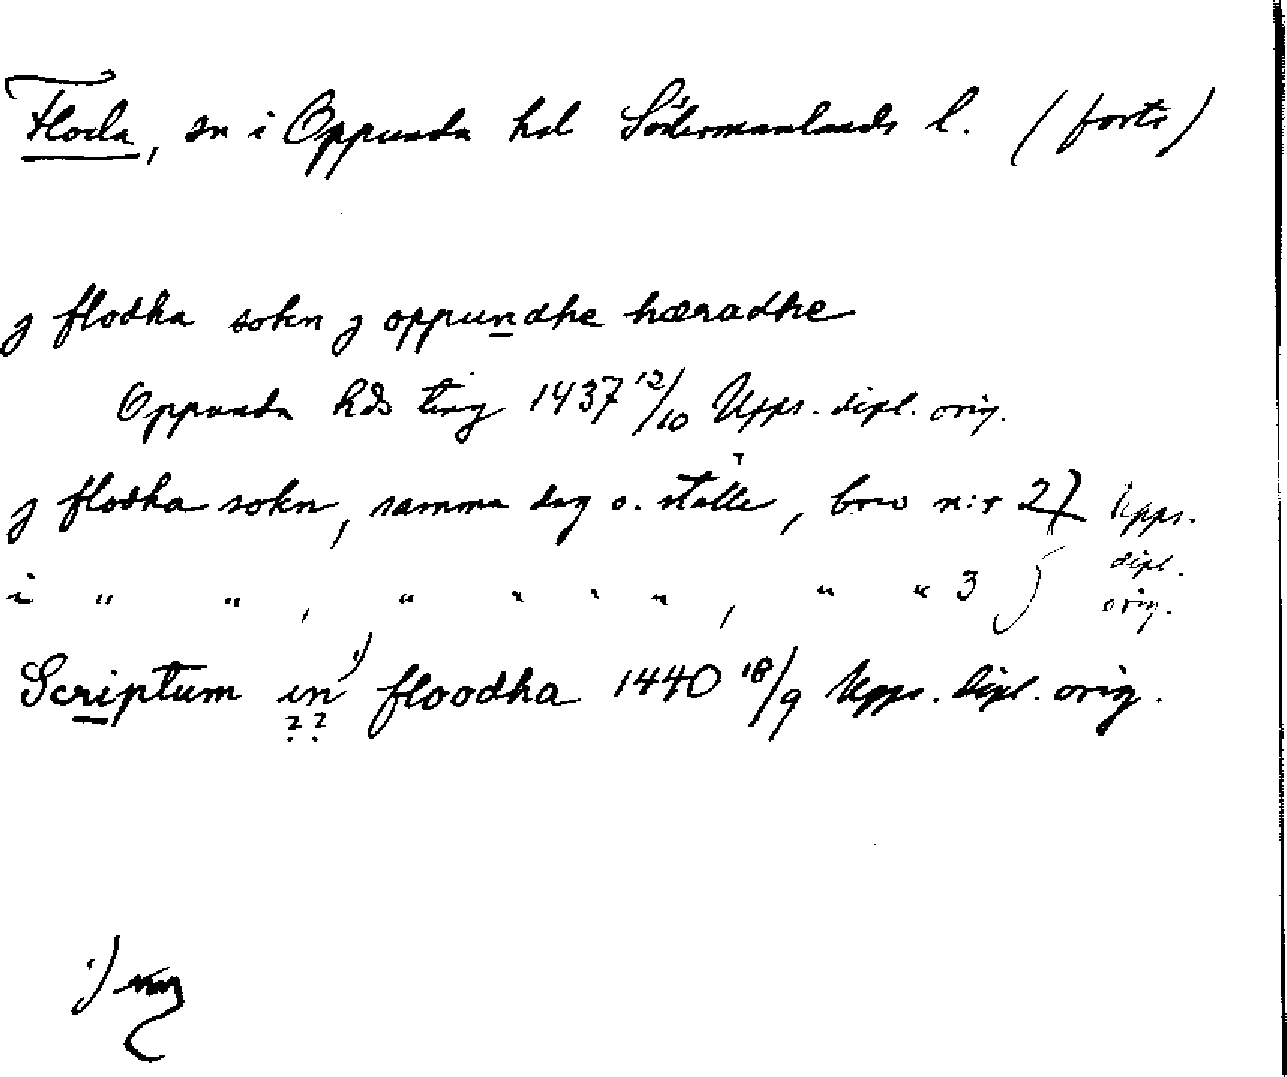 Floda, sn i Oppunda hd Södermanlands l. (forts)
j flodha sokn j oppundhe hæradhe
Oppunda hds ting 1437 12/10 Upps. dipl. orig.
j flodha sokn, samma dag o. ställe, brev n:r 2 } Upps. dipl. orig.
i " " , " " " " , " " 3
Scriptum in 1) floodha 1440 18/9 Upps. dipl. orig.
??
1)